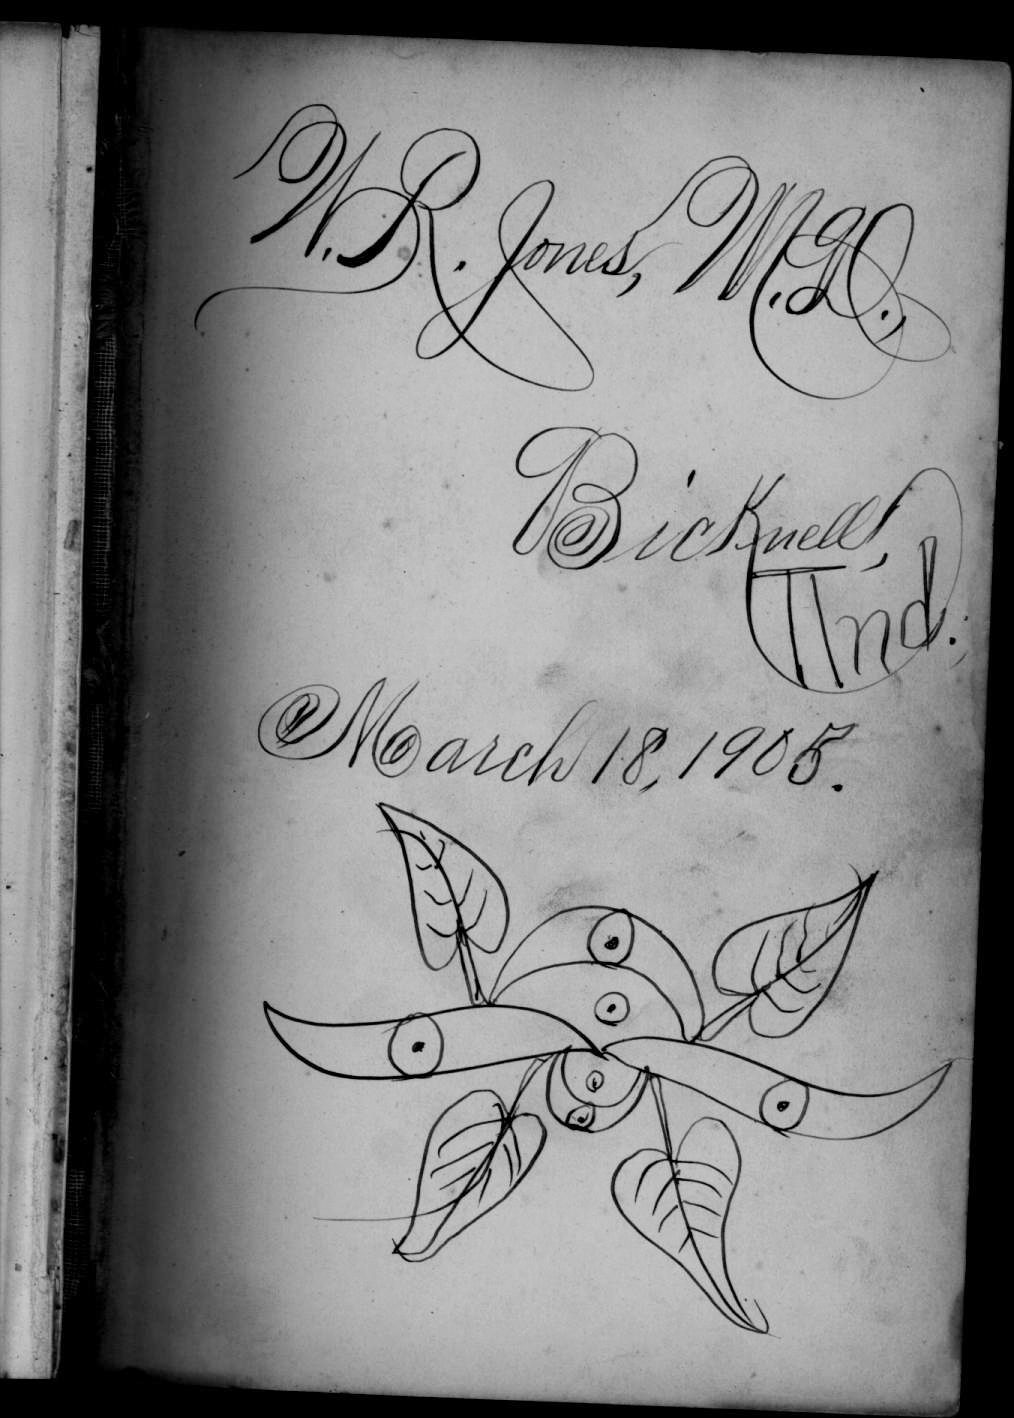 W. R. Jones, M.D.,
Bicknell,
Ind.
March 18, 1905.